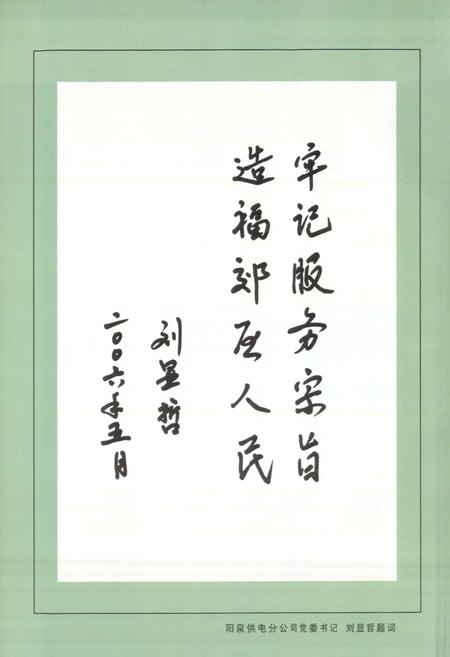 牢记服务宗旨
造福郊区人民
刘显哲
二〇〇六年五月
阳泉供电分公司党委书记 刘显哲题词